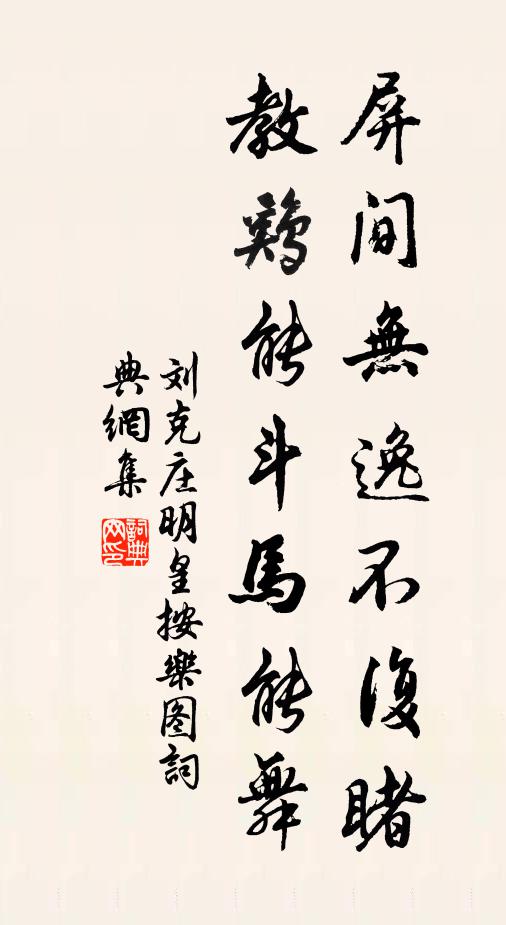 屏间無逸不復睹
教鷄能斗馬能舞
刘克庄明皇按樂图詞
典網集
詞典网印